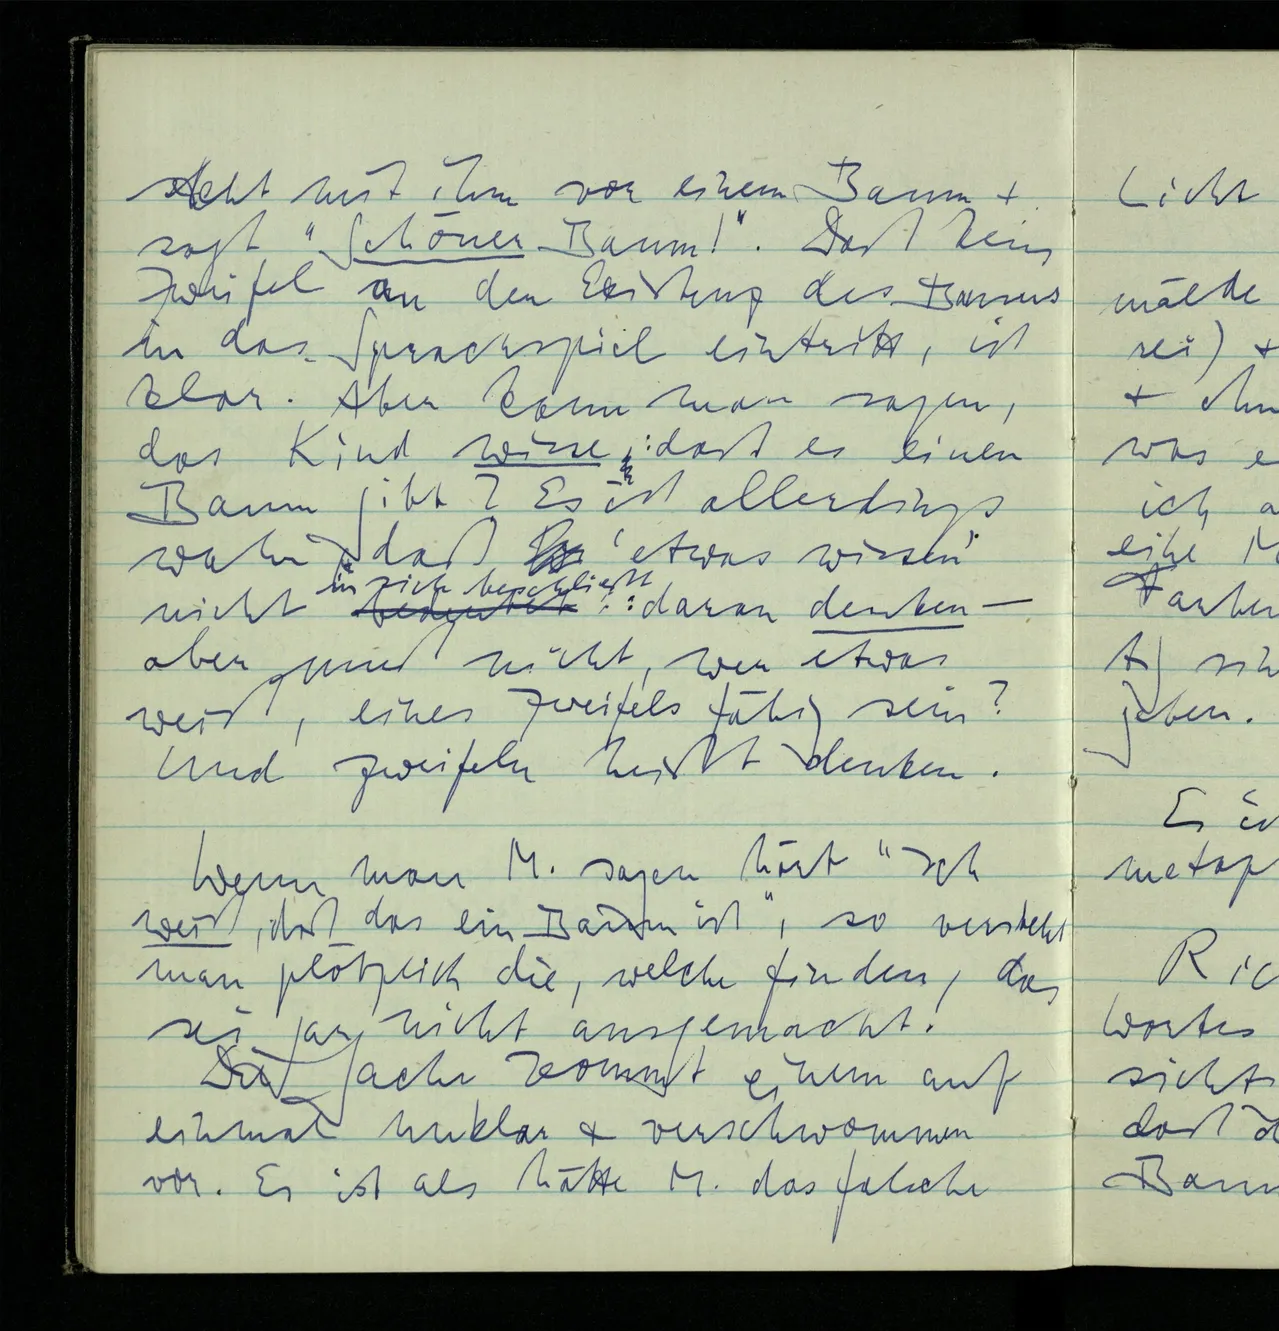 steht mit ihm vor einem Baum +
sagt "Schöner Baum!". Daß kein
Zweifel an der Existenz des Baumes
in das Sprachspiel eintritt, ist
klar. Aber kann man sagen,
das Kind wisse: daß es einen
Baum gibt? Es ist allerdings
wahr, daß 'etwas wissen'
in sich beschließt
nicht bedeutet: daran denken —
aber muß nicht, wer etwas
weiß, eines Zweifels fähig sein?
Und zweifeln heißt denken.
Wenn man M. sagen hört "Ich
weiß, daß das ein Baum ist", so versteht
man plötzlich die, welche finden, das
sei gar nicht ausgemacht.
Die Sache kommt einem auf
einmal unklar & verschwommen
vor. Es ist als hätte M. das falsche
Licht
mälde
sei) +
+ ohn
was e
ich a
eine M
Farben
A) sin
geben.
Es is
metap
Ric
Wortes
sicht
daß d
Baum